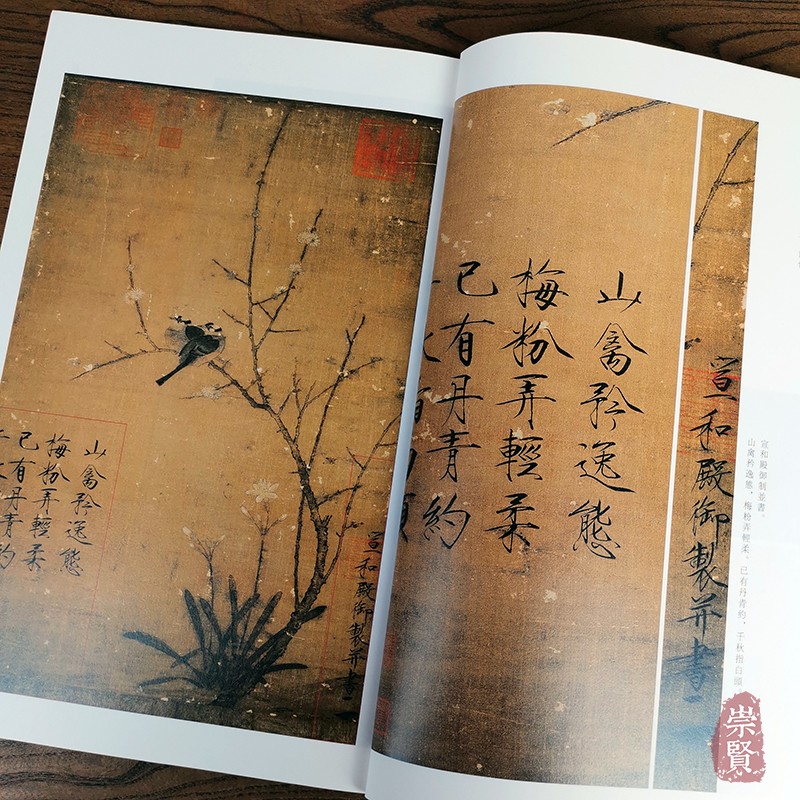 宣和殿御製并書
山禽矜逸態
梅粉弄輕柔
已有丹青約
山禽矜逸態
梅粉弄輕柔
已有丹青約
宣和殿御製并書
宣和殿御制並書。
山禽矜逸態，梅粉弄輕柔。已有丹青約，千秋指白頭
崇賢